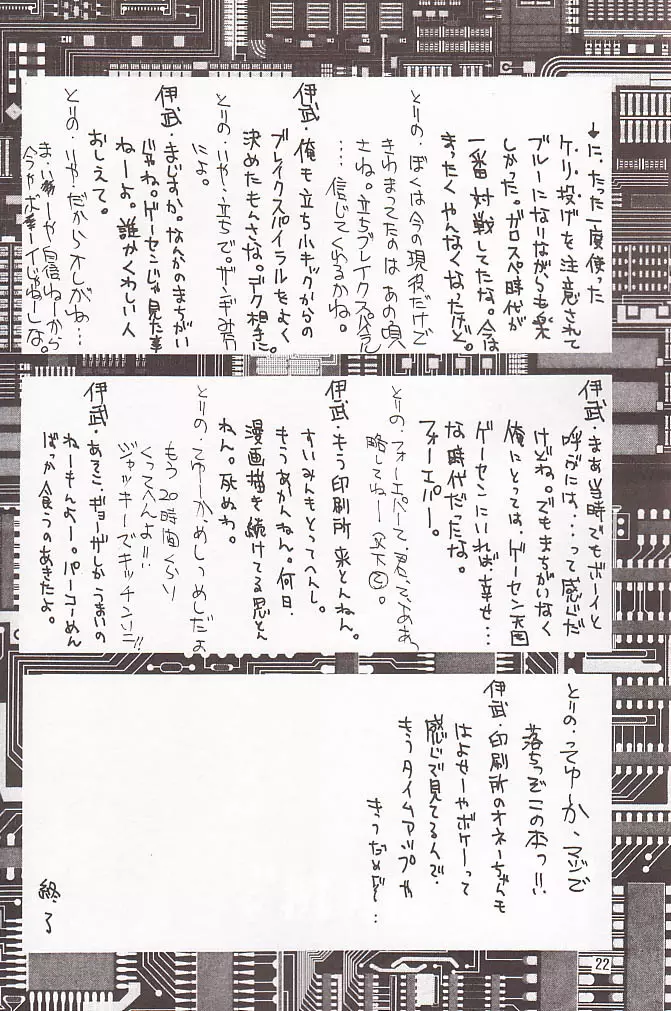 ↓に、たった一度使った
ケリ投げを注意されて
ブルーになりながらも楽
しかった。ガロスペ時代が
一番対戦してたな。今は
まったくやんなくなったけど。
とりの・ぼくは今の現役だけで
きわまってたのはあの頃
さね。立ちブレイクスパイラル
…信じてくれるかね。
伊武・俺も立ち小キックからの
ブレイクスパイラルをよく
決めたもんさな。デク相手に。
とりの・いや、立ちで。ザンギみ方
によ。
伊武・まじすか。なんかのまちがい
じゃね。ゲーセンじゃ見た事
ねーよ。誰かくわしい人
おしえて。
とりの・いや・だからオレがね…
ま、いーや自信ねーから
今やボーイじゃねしな。
伊武・まあ当時でもボーイと
呼ぶには…って感じだ
けどね。でもまちがいなく
俺にとっては、ゲーセン天国
ゲーセンにいれば、幸せ…
な時代だったな。
フォーエバー。
とりの・フォーエバーて、君ってああ
略してねー（以下
伊武・もう印刷所来とんねん。
すいみんもとってへんし。
もうあかんねん。何日、
漫画描き続けてる思とん
ねん。死ぬわ。
とりの・てゆーか、めしつめしだよ
もう20時間くらい
くってへんよ!!
ジャッキーでキッチンいこ!!
伊武・あそこ、ギョーザしかうまいの
ねーもんよー。パーコーめん
ばっか食うのあきたよ。
とりの・ってゆーか、マジで
落ちっぞこの本っ!!
伊武・印刷所のオネーちゃんも
はよせーやボケーって
感じで見てるんで
もうタイムアップや
きっだめだ…
終了
22